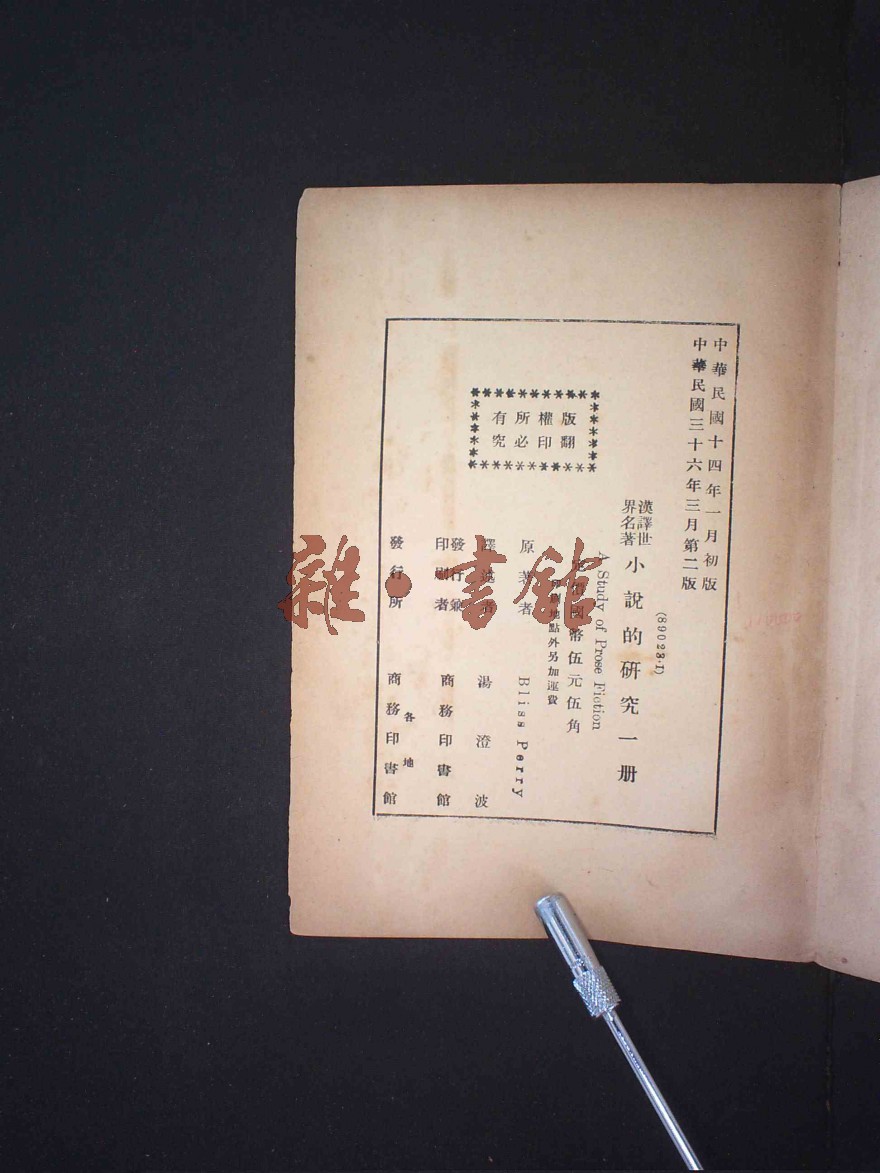 中華民國十四年一月初版
中華民國三十六年三月第二版
(89023·1)
漢譯世界名著
小說的研究一册
A Study of Prose Fiction
價國幣伍元伍角
地點外另加運費
原著者 Bliss Perry
譯述者 湯澄波
發行兼印刷者 商務印書館
發行所 各地 商務印書館
版權所有
翻印必究
雜·書館